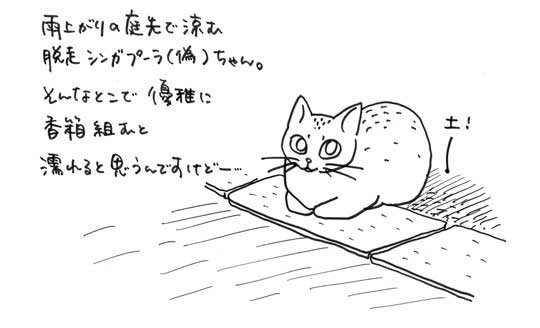 雨上がりの庭先で涼む
脱走シンガプーラ(偽)ちゃん。
そんなとこで優雅に
香箱組むと
濡れると思うんですけどー…
土!